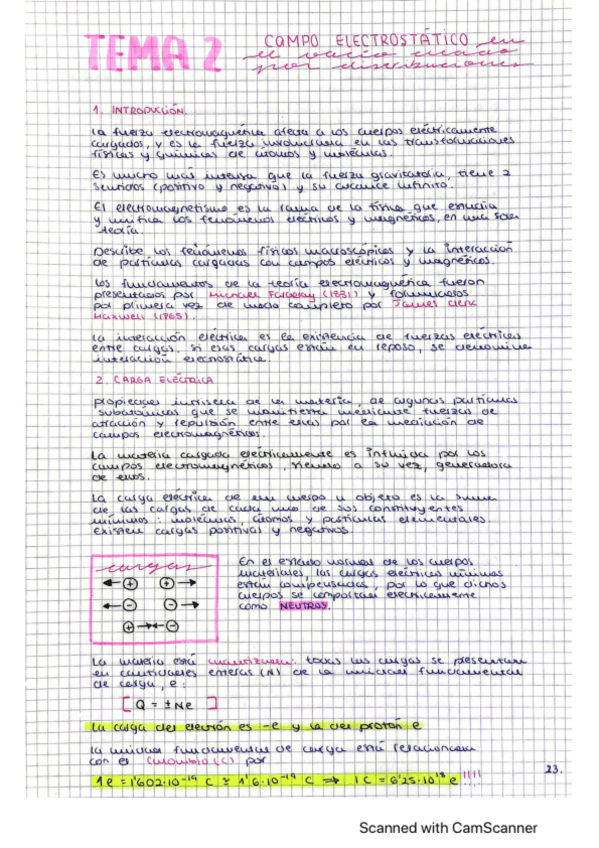 TEMA 2 CAMPO ELECTROSTÁTICO en
el vacío creado
por distribuciones
1. INTRODUCCIÓN.
La fuerza electromagnética afecta a los cuerpos eléctricamente
cargados, y es la fuerza involucrada en las transformaciones
físicas y químicas de átomos y moléculas.
Es mucho más intensa que la fuerza gravitatoria, tiene 2
sentidos (positivo y negativo) y su alcance infinito.
El electromagnetismo es la rama de la física que estudia
y unifica los fenómenos eléctricos y magnéticos, en una sola
teoría.
Describe los fenómenos físicos macroscópicos y la interacción
de partículas cargadas con campos eléctricos y magnéticos.
Los fundamentos de la teoría electromagnética fueron
presentados por Michael Faraday (1831) y formulados
por primera vez de modo completo por James Clerk
Maxwell (1865).
La interacción eléctrica es la existencia de fuerzas eléctricas
entre cargas. Si esas cargas están en reposo, se denomina
interacción electrostática.
2. CARGA ELÉCTRICA
Propiedad intrínseca de la materia, de algunas partículas
subatómicas que se manifiesta mediante fuerzas de
atracción y repulsión entre ellas por la mediación de
campos electromagnéticos.
La materia cargada eléctricamente es influida por los
campos electromagnéticos, siendo a su vez, generadora
de ellos.
La carga eléctrica de un cuerpo u objeto es la suma
de las cargas de cada uno de sus constituyentes
mínimos: moléculas, átomos y partículas elementales.
Existen cargas positivas y negativas.
cargas
+ +
- -
+ -
En el estado normal de los cuerpos
materiales, las cargas eléctricas mínimas
están compensadas, por lo que dichos
cuerpos se comportan eléctricamente
como NEUTROS.
La materia está cuantizada: todas las cargas se presentan
en cantidades enteras (N) de la unidad fundamental
de carga, e:
[ Q = ±Ne ]
La carga del electrón es -e y la del protón e
La unidad fundamental de carga está relacionada
con el Culombio (C) por
1e = 1'602·10⁻¹⁹ C ≃ 1'6·10⁻¹⁹ C ⇒ 1C = 6'25·10¹⁸ e !!!!
23.
Scanned with CamScanner